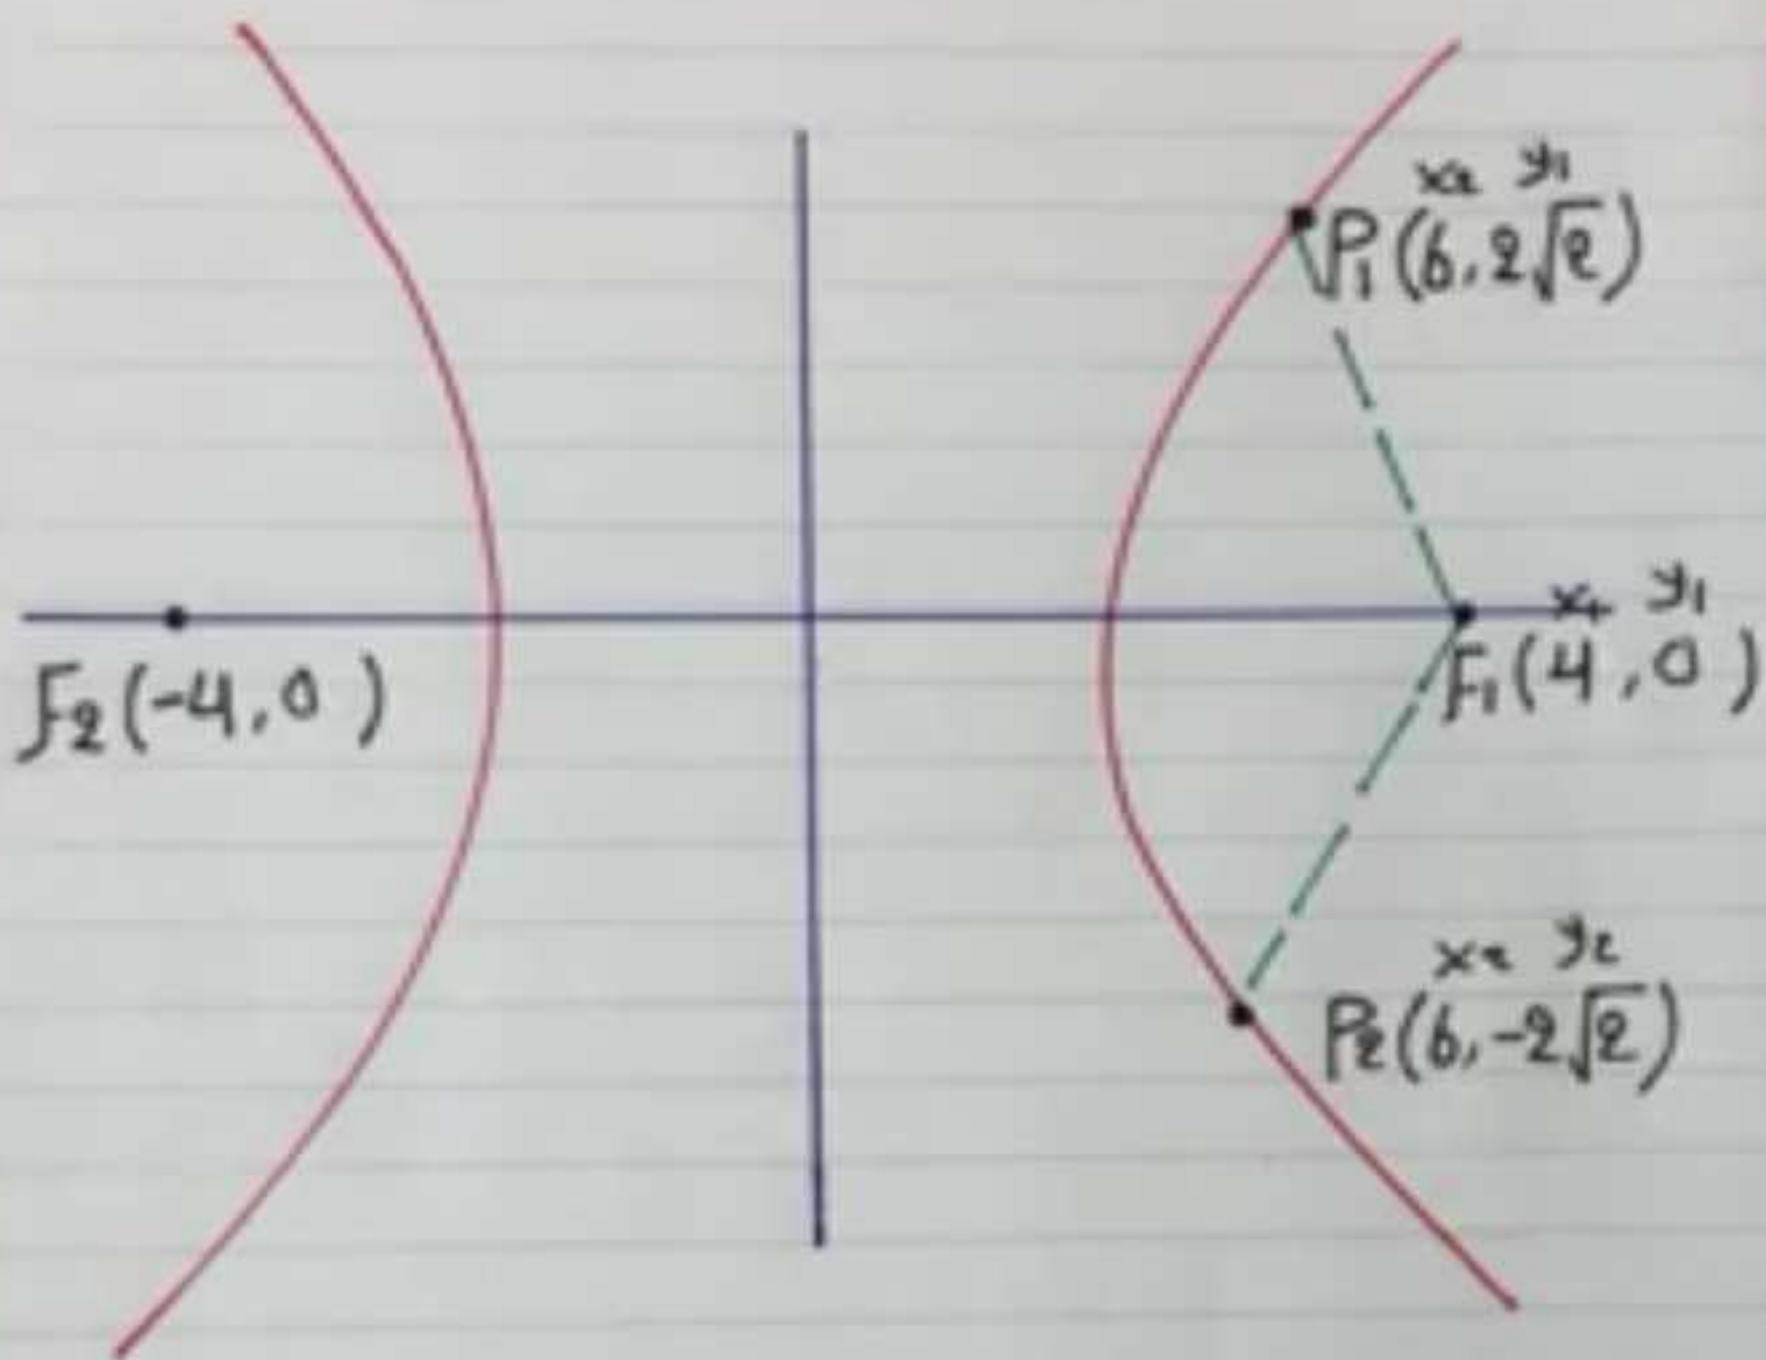 x₂ y₁
P₁(6,2√2)
x₁ y₁
F₁(4,0)
F₂(-4,0)
x₂ y₂
P₂(6,-2√2)